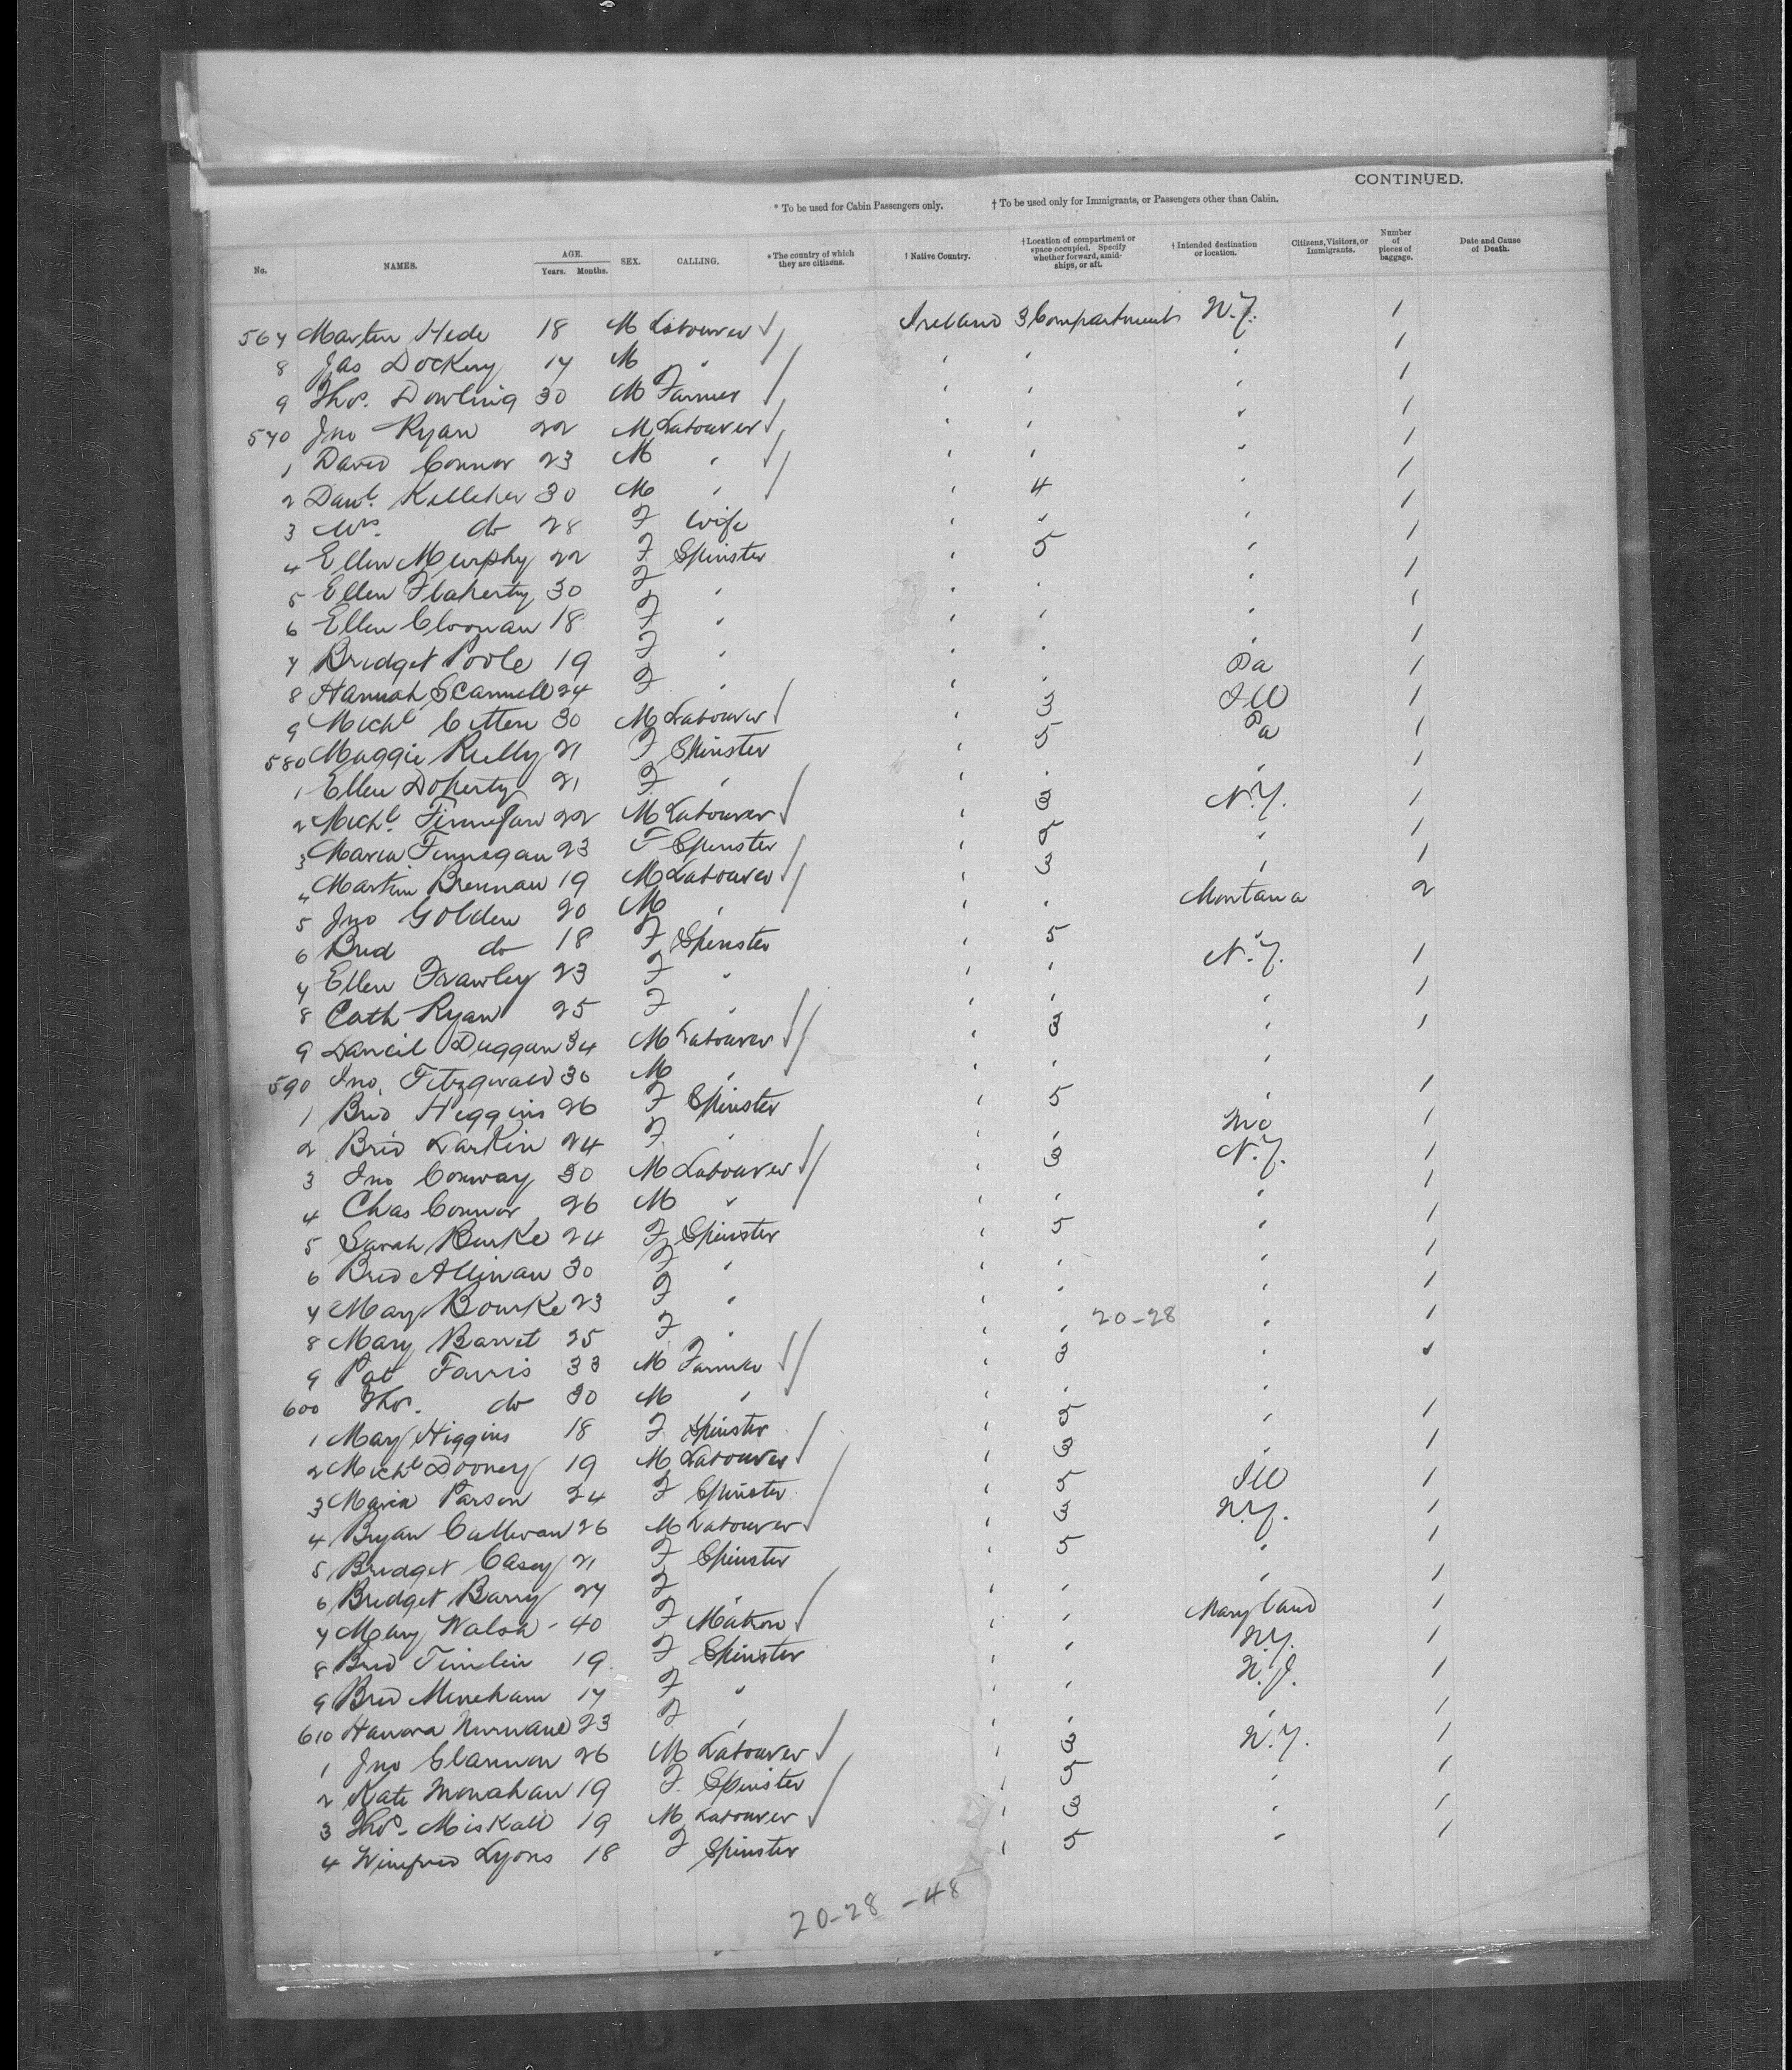 CONTINUED.
* To be used for Cabin Passengers only. † To be used only for Immigrants, or Passengers other than Cabin.
No. NAMES. AGE. Years. Months. SEX. CALLING. * The country of which they are citizens. † Native Country. † Location of compartment or space occupied. Specify whether forward, amidships, or aft. † Intended destination or location. Citizens, Visitors, or Immigrants. Number of pieces of baggage. Date and Cause of Death.
567 Martin Hede 18 M Labourer Ireland 3 Compartment N.Y. 1
8 Jas Dockery 17 M " " " " 1
9 Thos. Dowling 30 M Farmer " " " 1
570 Jno Ryan 22 M Labourer " " " 1
1 David Connor 23 M " " " " 1
2 Danl. Kelleher 30 M " " 4 " 1
3 Mrs. do 28 F Wife " " " 1
4 Ellen Murphy 22 F Spinster " 5 " 1
5 Ellen Flaherty 30 F " " " " 1
6 Ellen Cloonan 18 F " " " " 1
7 Bridget Poole 19 F " " " " 1
8 Hannah Scannell 24 F " " " Pa 1
9 Michl 30 M Labourer " 3 Ill 1
580 Maggie Reilly 21 F Spinster " 5 Pa 1
1 Ellen Doherty 21 F " " " " 1
2 Michl. Finnegan 22 M Labourer " 3 N.Y. 1
3 Maria Finnegan 23 F Spinster " 5 " 1
4 Martin Brennan 19 M Labourer " 3 " 1
5 Jno Golden 20 M " " " Montana 2
6 Brid do 18 F Spinster " 5 "
7 Ellen Frawley 23 F " " " N.Y. 1
8 Cath Ryan 25 F " " " " 1
9 Daneil Duggan 34 M Labourer " 3 " 1
590 Jno. Fitzgerald 30 M " " " "
1 Brid Higgins 26 F Spinster " 5 " 1
2 Brid Larkin 24 F " " " Mo 1
3 Jno Conway 30 M Labourer " 3 N.Y. 1
4 Chas Connor 26 M " " " " 1
5 Sarah Burke 24 F Spinster " 5 " 1
6 Brid Allinan 30 F " " " " 1
7 Mary Bourke 23 F " " " " 1
20-28
8 Mary Barret 25 F " " " " 1
9 Pat Farris 33 M Farmer " 3 "
600 Thos. do 30 M " " " "
1 Mary Higgins 18 F Spinster " 5 " 1
2 Michl Dooney 19 M Labourer " 3 " 1
3 Maria Parson 24 F Spinster " 5 Ill 1
4 Bryan 26 M Labourer " 3 N.Y. 1
5 Bridget Casey 21 F Spinster " 5 " 1
6 Bridget Barry 27 F " " " " 1
7 Mary Walsh - 40 F Matron " " Maryland 1
8 Brid Timlin 19 F Spinster " " N.Y. 1
9 Brid Mineham 17 F " " " N.J. 1
610 Hanora 23 F " " " " 1
1 Jno Glannon 26 M Labourer " 3 N.Y. 1
2 Kate Monahan 19 F Spinster " 5 " 1
3 Thos. Miskall 19 M Labourer " 3 " 1
4 Winefred Lyons 18 F Spinster " 5 " 1
20-28-48